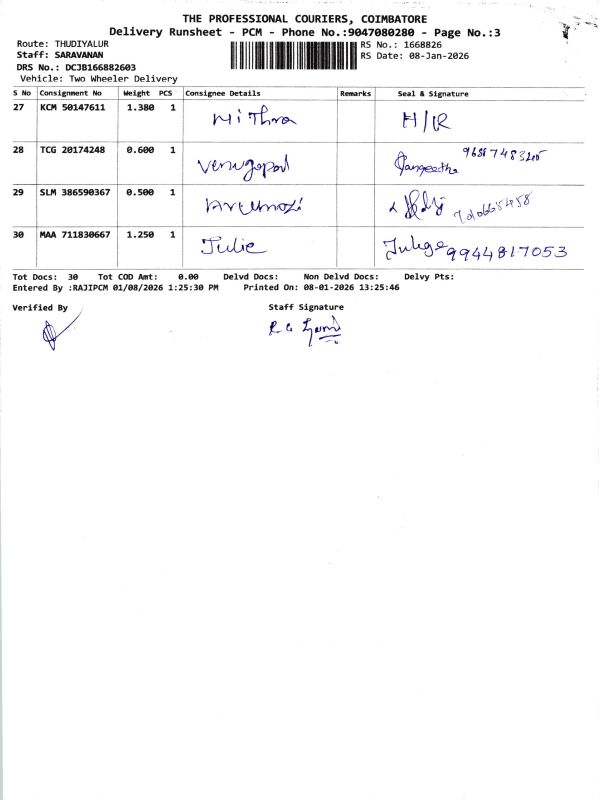 THE PROFESSIONAL COURIERS, COIMBATORE
Delivery Runsheet - PCM - Phone No.:9047080280 - Page No.:3
Route: THUDIYALUR
Staff: SARAVANAN
DRS No.: DCJB166882603
Vehicle: Two Wheeler Delivery
RS No.: 1668826
RS Date: 08-Jan-2026
S No Consignment No Weight PCS Consignee Details Remarks Seal & Signature
27 KCM 50147611 1.380 1 Mithra H/R
28 TCG 20174248 0.600 1 Venugopal Sangeetha
29 SLM 386590367 0.500 1
30 MAA 711830667 1.250 1 Julie 9944817053
Tot Docs: 30 Tot COD Amt: 0.00 Delvd Docs: Non Delvd Docs: Delvy Pts:
Entered By :RAJIPCM 01/08/2026 1:25:30 PM Printed On: 08-01-2026 13:25:46
Verified By Staff Signature